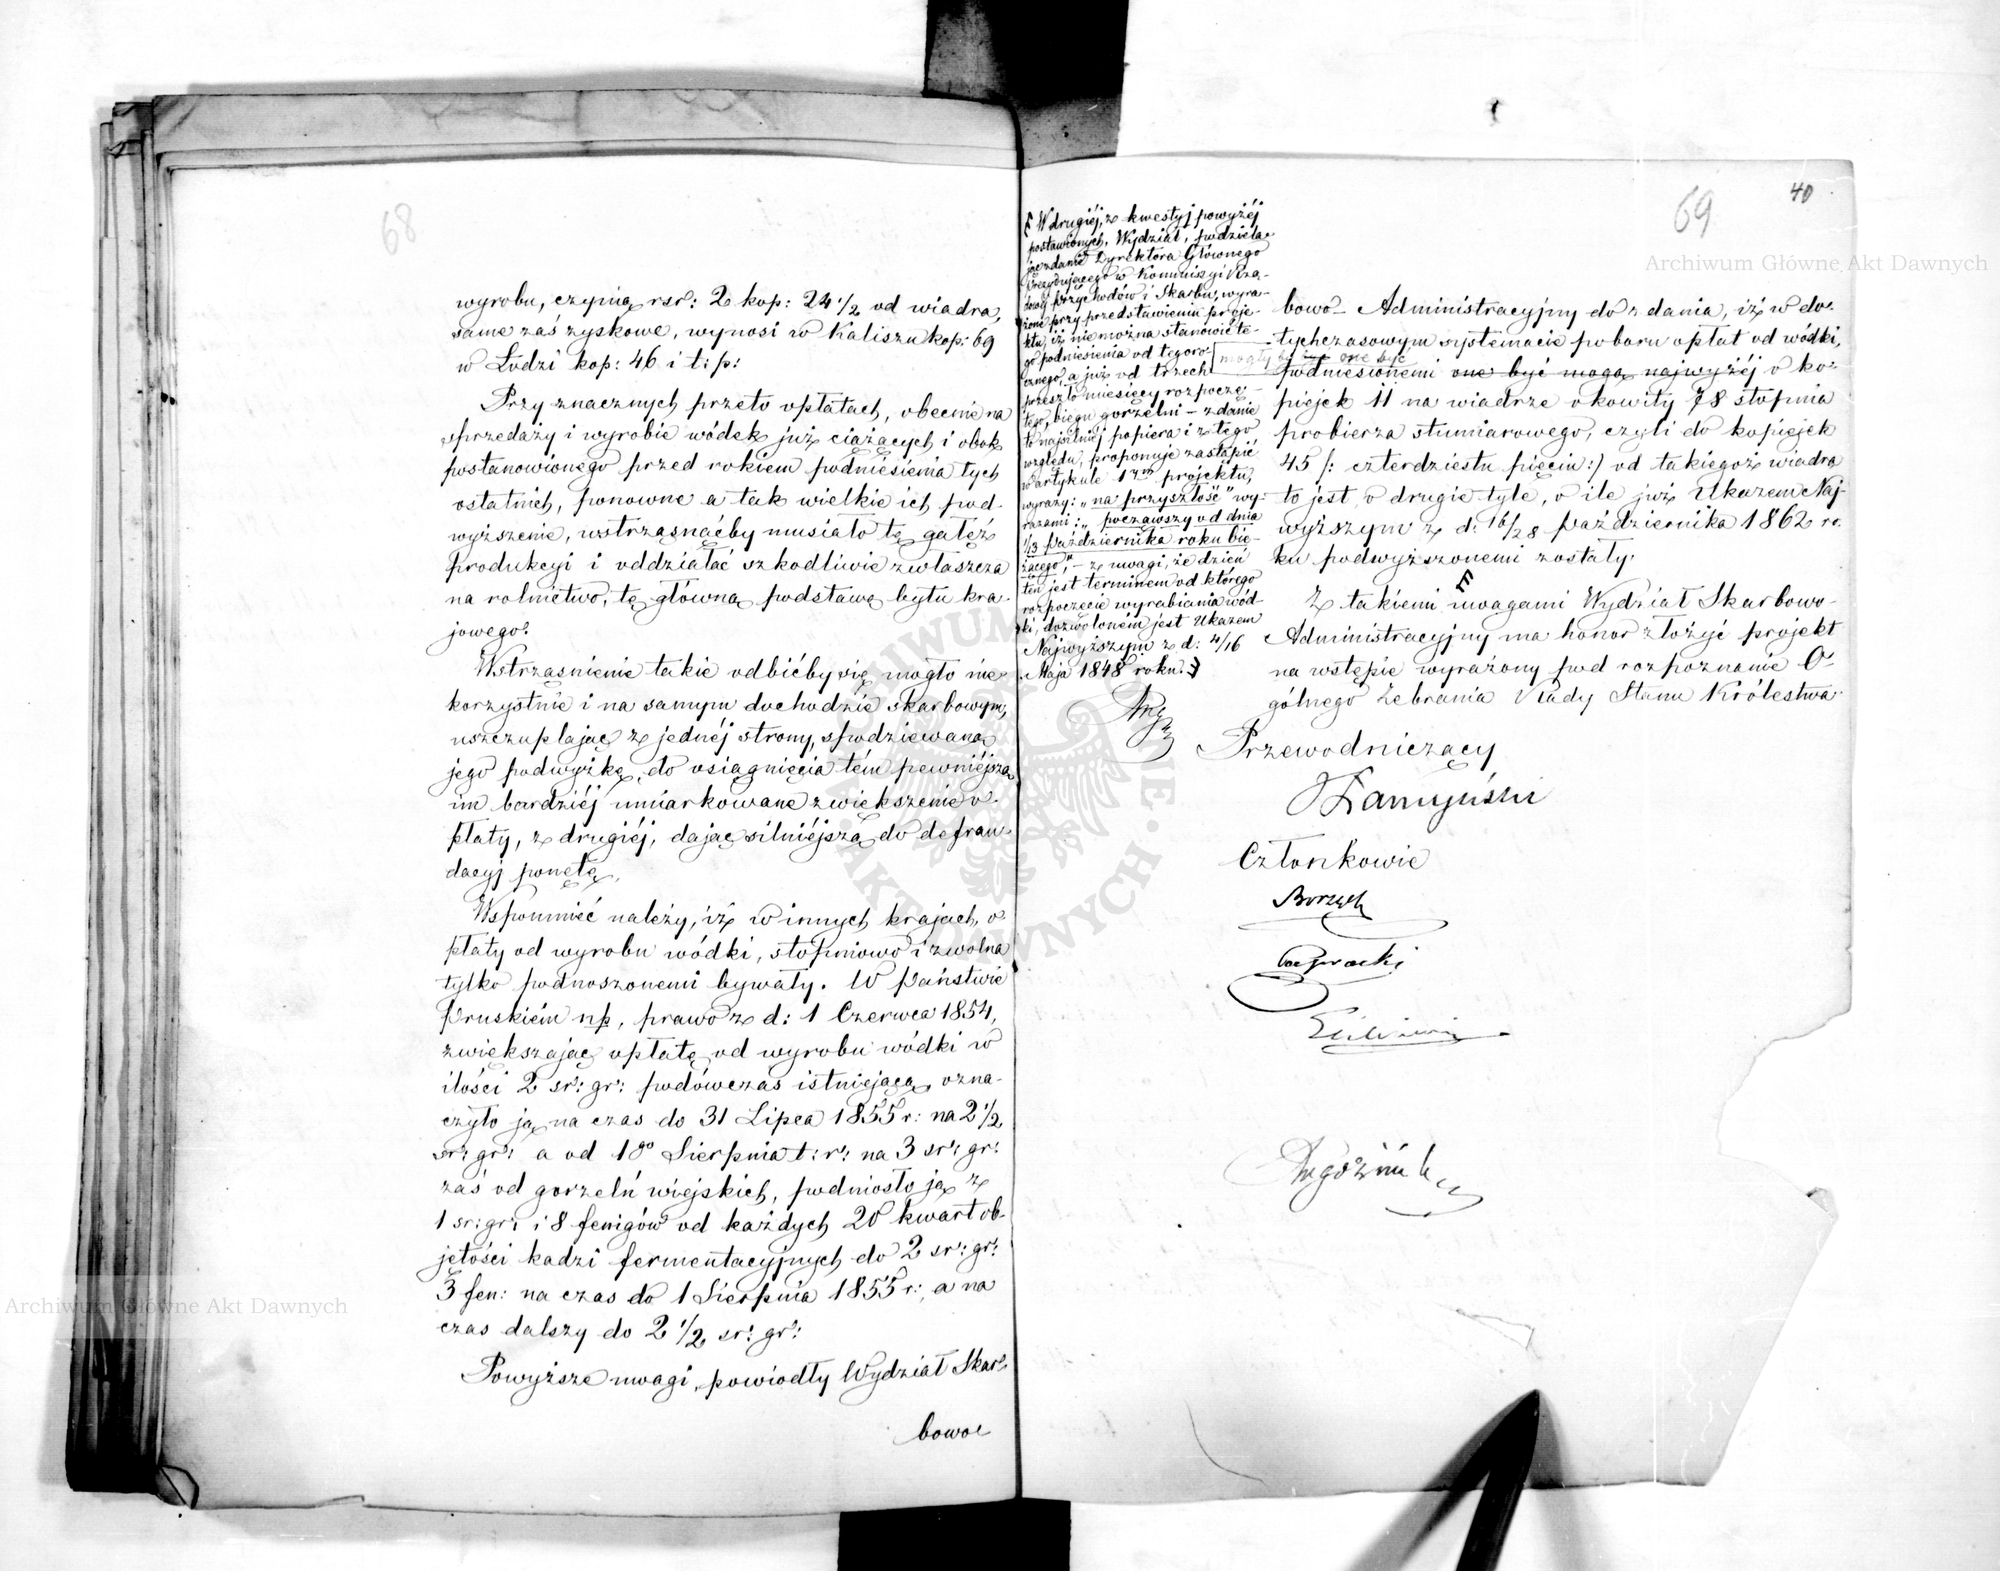 68
wyrobu, czynią rsr: 2 kop: 24 1/2 od wiadra,
same zaś zyskowe, wynosi w Kaliszu kop: 69
w Łodzi kop: 46 i t: p:
Przy znacznych przeto opłatach, obecnie na
sprzedaży i wyrobie wódek już ciążących i obok
postanowionego przed rokiem podniesienia tych
ostatnich, ponowne a tak wielkie ich pod-
wyższenie, wstrząsnąćby musiało tę gałęź
produkcyi i oddziałać szkodliwie zwłaszcza
na rolnictwo, tę główną podstawę bytu kra-
jowego.
Wstrząśnienie takie odbićby się mogło nie-
korzystnie i na samym dochodzie skarbowym,
uszczuplając z jednéj strony, spodziewaną
jego podwyżkę, do osiągnięcia tém pewniejszą
im bardziéj umiarkowane zwiększenie o-
płaty, z drugiéj, dając silniejszą do defrau-
dacyj ponętę.
Wspomnieć należy, iż w innych krajach, o-
płaty od wyrobu wódki, stopniowo i zwolna
tylko podnoszonemi bywały. W Państwie
Pruskiém np, prawo z d: 1 Czerwca 1854,
zwiększając opłatę od wyrobu wódki w
ilości 2 sr: gr: podówczas istniejącą, ozna-
czyło ją na czas do 31 Lipca 1855 r: na 2 1/2
sr: gr: a od 1go Sierpnia t: r: na 3 sr: gr:
zaś od gorzelń wiejskich, podniosło ją z
1 sr: gr: i 8 fenigów od każdych 20 kwart ob-
jętości kadzi fermentacyjnych do 2 sr: gr:
3 fen: na czas do 1 Sierpnia 1855 r:, a na
czas dalszy do 2 1/2 sr: gr:
Powyższe uwagi, powiodły Wydział Skar-
bowo-
40
69
W drugiéj, z kwestyj powyżéj
postawionych, Wydział, podziela-
jąc zdanie Dyrektora Głównego
Prezydującego w Kommissyi Rzą-
dowéj Przychodów i Skarbu, wyra-
żone przy przedstawieniu proje-
ktu, iż nie można stanowić te-
go podniesienia od tegoro-
cznego, a już od trzech
przeszło miesięcy rozpoczę-
tego, biegu gorzelni – zdanie
to najsilniéj popiera i z tego
względu, proponuje zastąpić
w artykule 1m projektu,
wyrazy: „na przyszłość" wy-
razami: „począwszy od dnia
1/13 Października roku bie-
żącego", – z uwagi, że dzień
ten jest terminem od którego
rozpoczęcie wyrabiania wód-
ki, dozwoloném jest Ukazem
Najwyższym z d: 4/16
Maja 1848 roku.
bowo-Administracyjny do zdania, iż w do-
tychczasowym systemacie poboru opłat od wódki,
mogły by one być
podniesionemi one być mogą najwyżéj o ko-
piejek 11 na wiadrze okowity 78 stopnia
probierza stumiarowego, czyli do kopiejek
45 /: czterdziestu pięciu :/ od takiegoż wiadra
to jest o drugie tyle, o ile już Ukazem Naj-
wyższym z d: 16/28 Października 1862 ro-
ku podwyższonemi zostały.
Z takiemi uwagami Wydział Skarbowo-
Administracyjny ma honor złożyć projekt
na wstępie wyrażony pod rozpoznanie O-
gólnego Zebrania Rady Stanu Królestwa.
Przewodniczący
Członkowie
Archiwum Główne Akt Dawnych
Archiwum Główne Akt Dawnych
ARCHIWUM GŁÓWNE AKT DAWNYCH